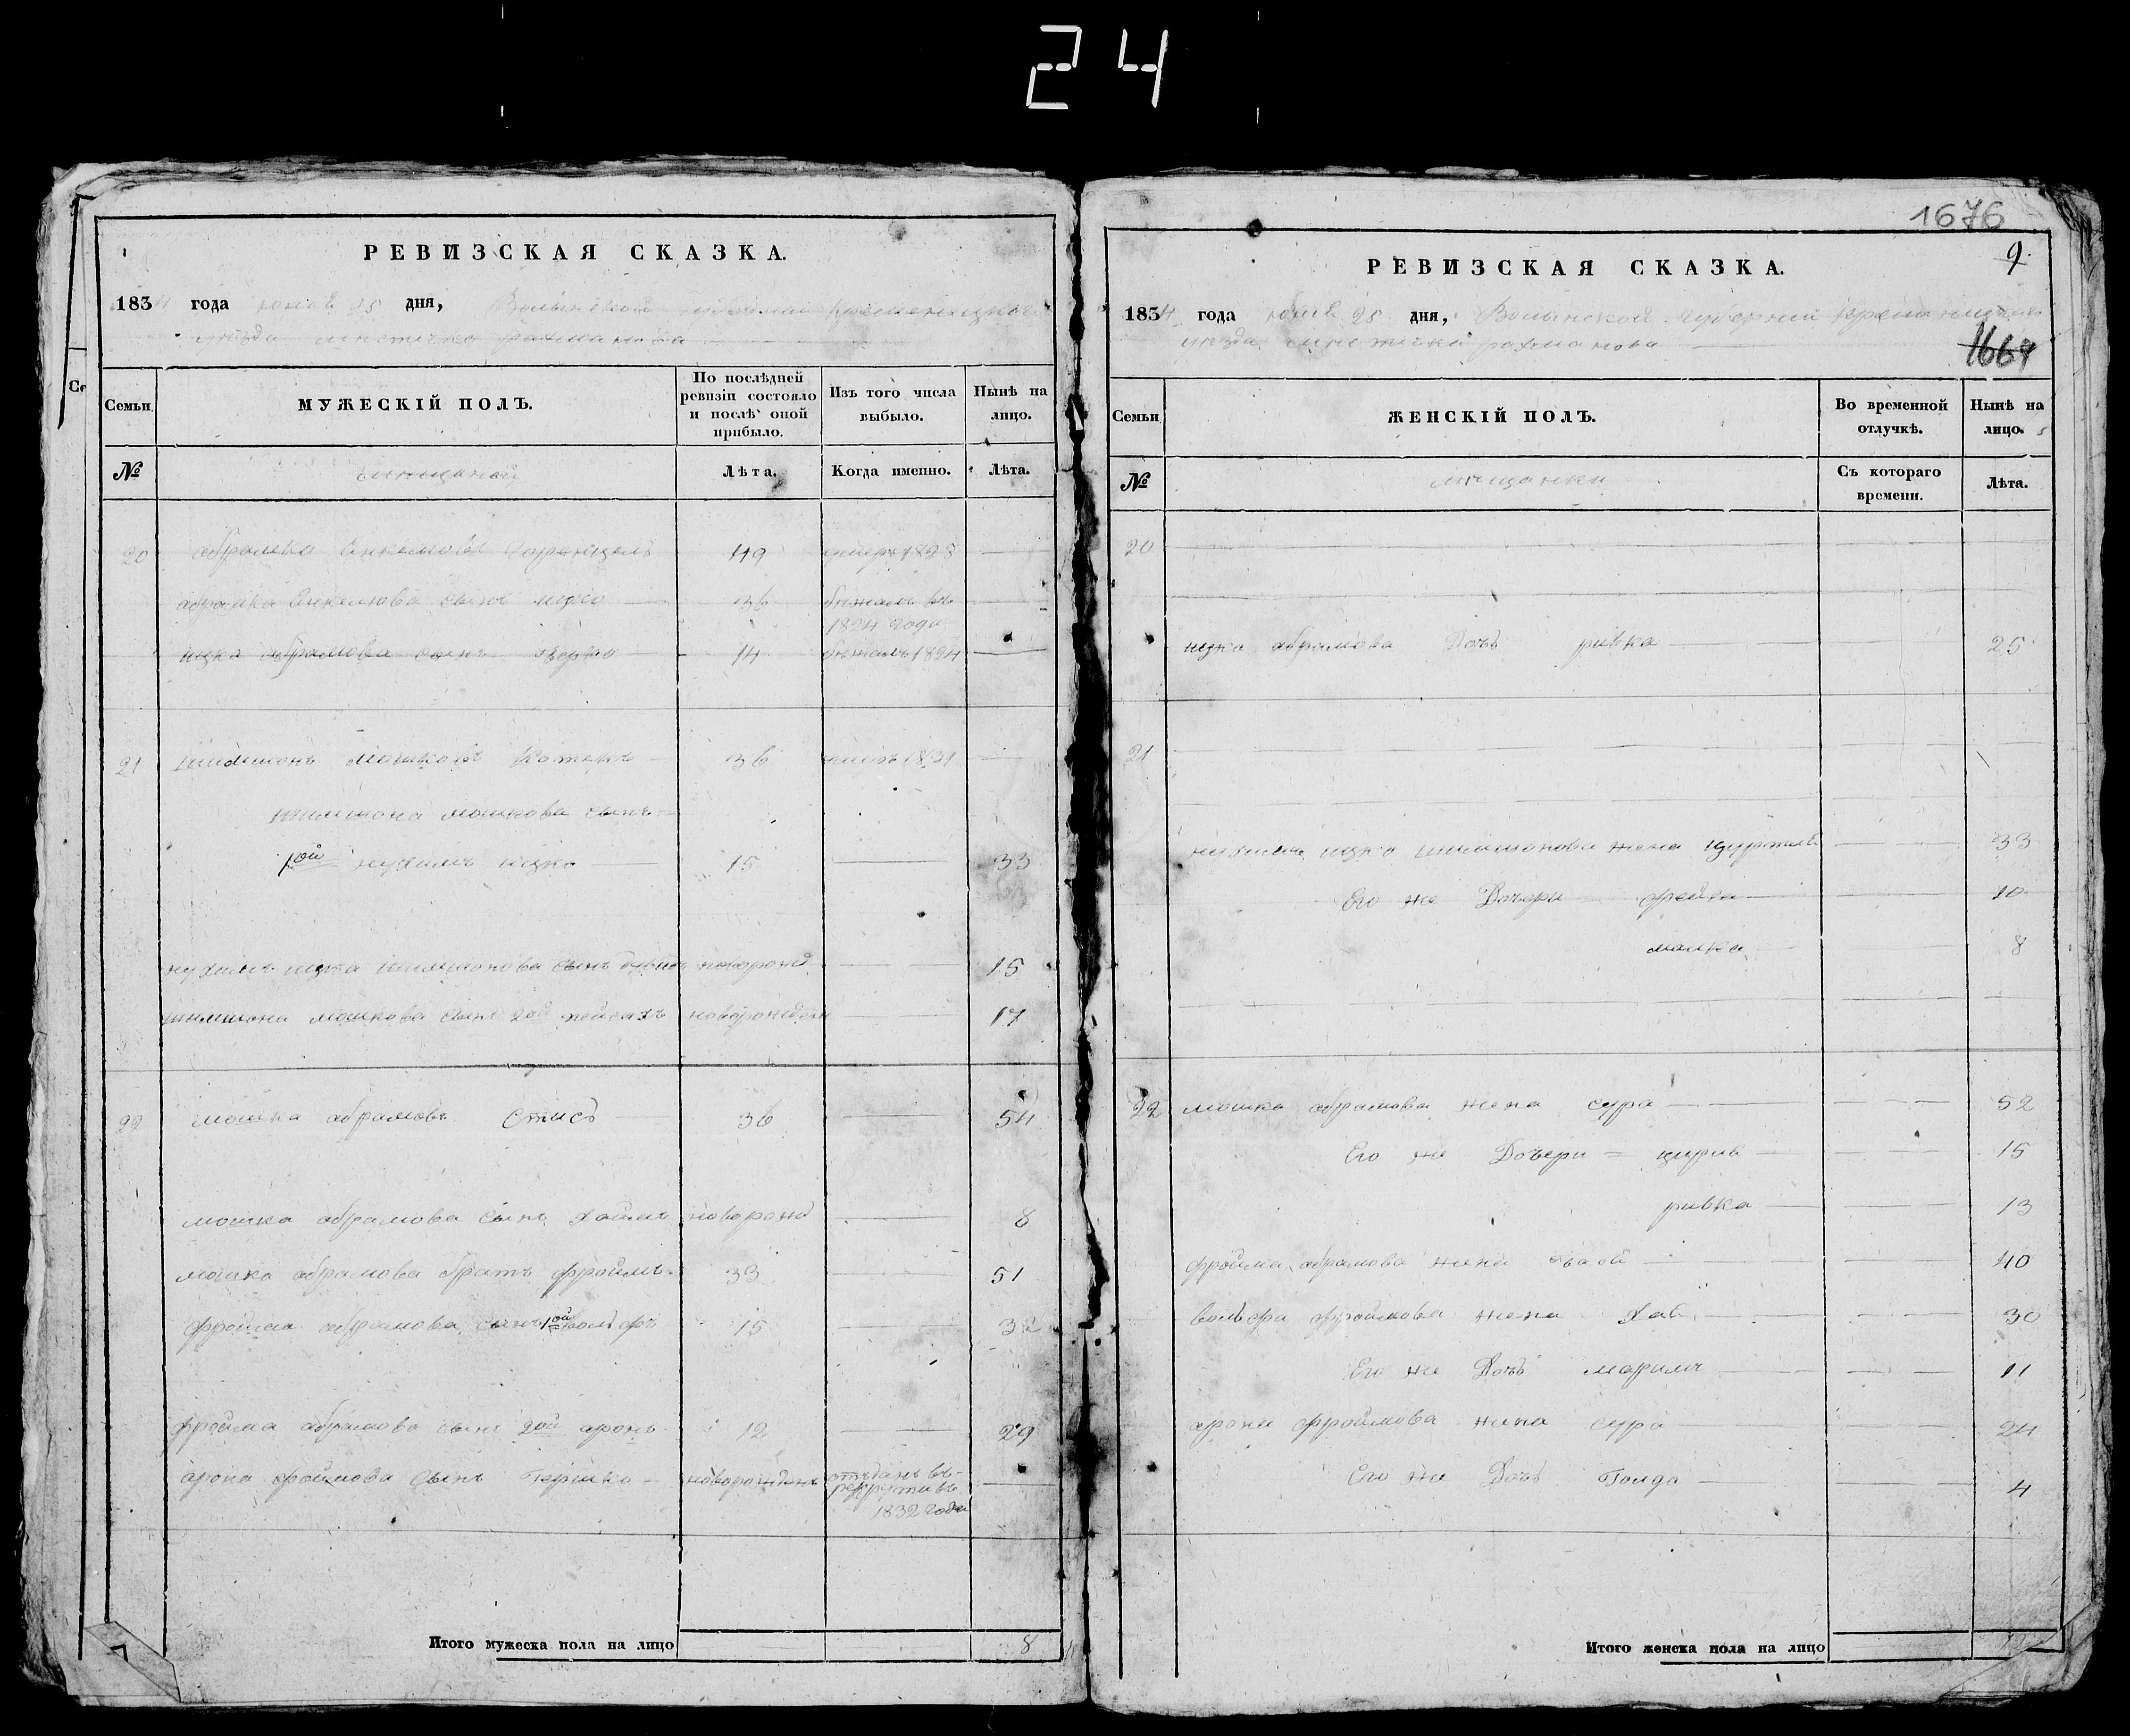 24
РЕВИЗСКАЯ СКАЗКА.
183 года 25 дня, Волынской губернии Кременецкого
уезда местечка рахманова
Семьи
МУЖЕСКІЙ ПОЛЪ.
По послѣдней ревизіи состояло и послѣ оной прибыло.
Изъ того числа выбыло.
Нынѣ на лицо.
№
Лѣта.
Когда именно.
Лѣта.
20 абрамко 49 умеръ 1828
абрамка сынъ ицко 36 бежалъ въ
1824 годе
ицка абрамова сынъ берко 14 бежалъ 1824
21 шимшонъ мошковъ 36 умеръ 1831
шимшона мошкова сынъ
1ой нухимъ ицко 15 33
нухимъ ицка шимшонова сынъ новорожд 15
шимшона мошкова сынъ 2ой пейсахъ новорожден 17
22 мошка абрамовъ Стисъ 36 54
мошка абрамова сынъ хаимъ новорожд 8
мошка абрамова братъ фроимъ 33 51
фройма абрамова сынъ 1ой волфъ 15 32
фройма абрамова сынъ 2ой аронъ 12 29
арона фроимова сынъ Гершко новорожденъ отъданъ въ
рекруты въ
1832 годе
Итого мужеска пола на лицо 8
1676
9.
РЕВИЗСКАЯ СКАЗКА.
1834 года 25 дня, Волынской губерний Кременецкого
уезда местечка рахманова
1669
Семьи
ЖЕНСКІЙ ПОЛЪ.
Во временной отлучкѣ.
Нынѣ на лицо.
№
мещанки
Съ котораго времени.
Лѣта.
20
ицко абрамова дочь ривка 25
21
нухима ицко шимшонова жена 33
Его же Дочери фейга 10
малка 8
22 мошко абрамова жена сура 52
Его же Дочери = цирив 15
ривка 13
фройма абрамова жена 40
вольфа фроимова жена Хая 30
Его же Дочь мариам 11
арона фроимова жена сура 24
Его же Дочь Голда 4
Итого женска пола на лицо